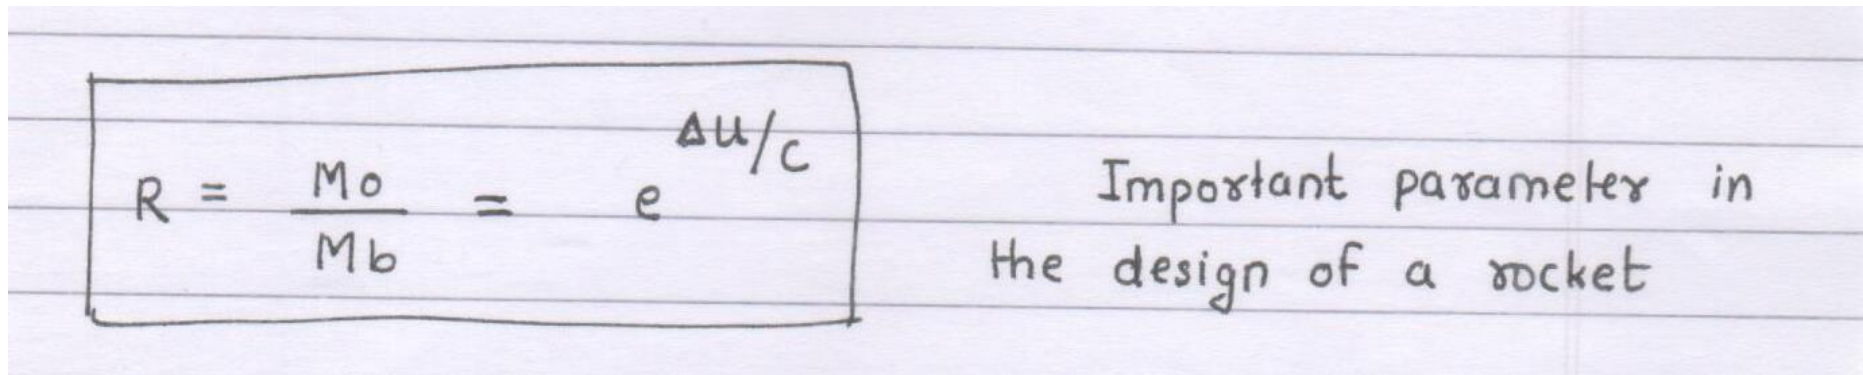 R = Mo/Mb = e^ΔU/C
Important parameter in
the design of a rocket